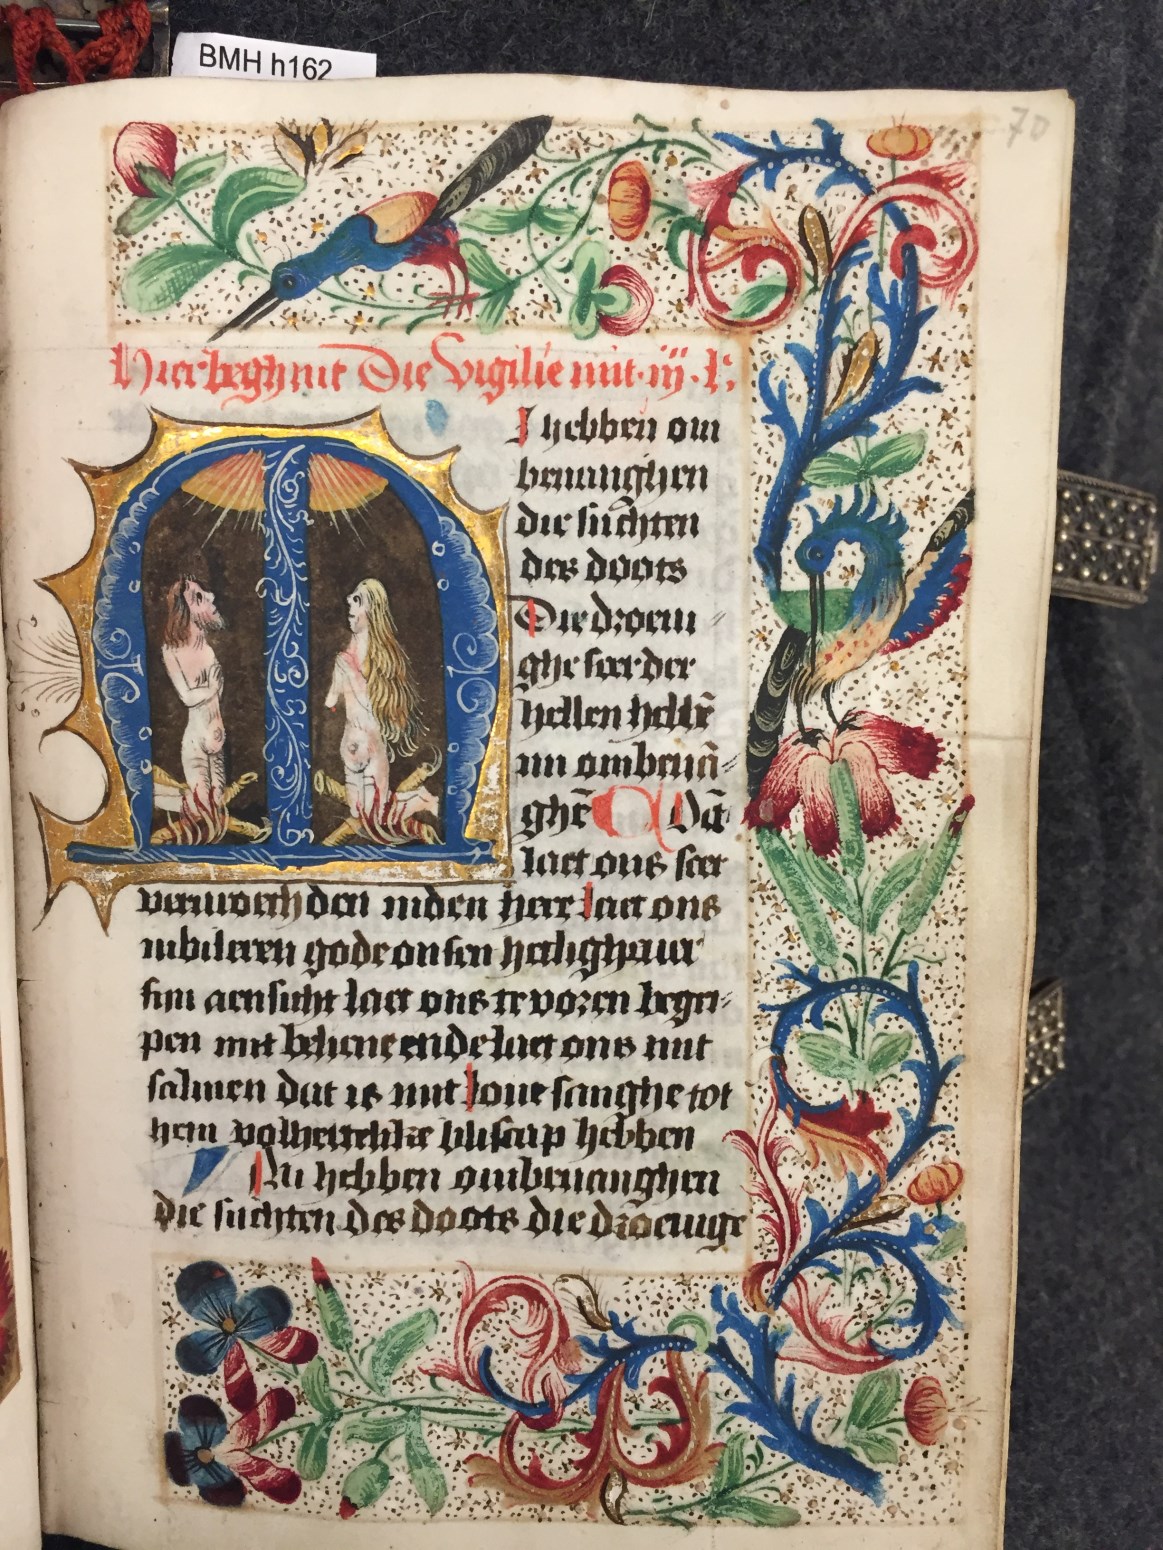 BMH h162
70
Hier beghint Die Vigilie mit .iij. l'.
MI hebben om
beuanghen
die suchten
des doots
Die droeui
ghe seer der
hellen hebbē
mi ombeuā
ghē Nu
laet ons seer
den inden heer laet ons
iubileren gode onsen
sijn aensicht laet ons te voren begri
pen mit ende laet ons mit
salmen dat is mit loue sanghe tot
hem bliscap hebben
Mi hebben ombeuanghen
die suchten des doots die droeuige